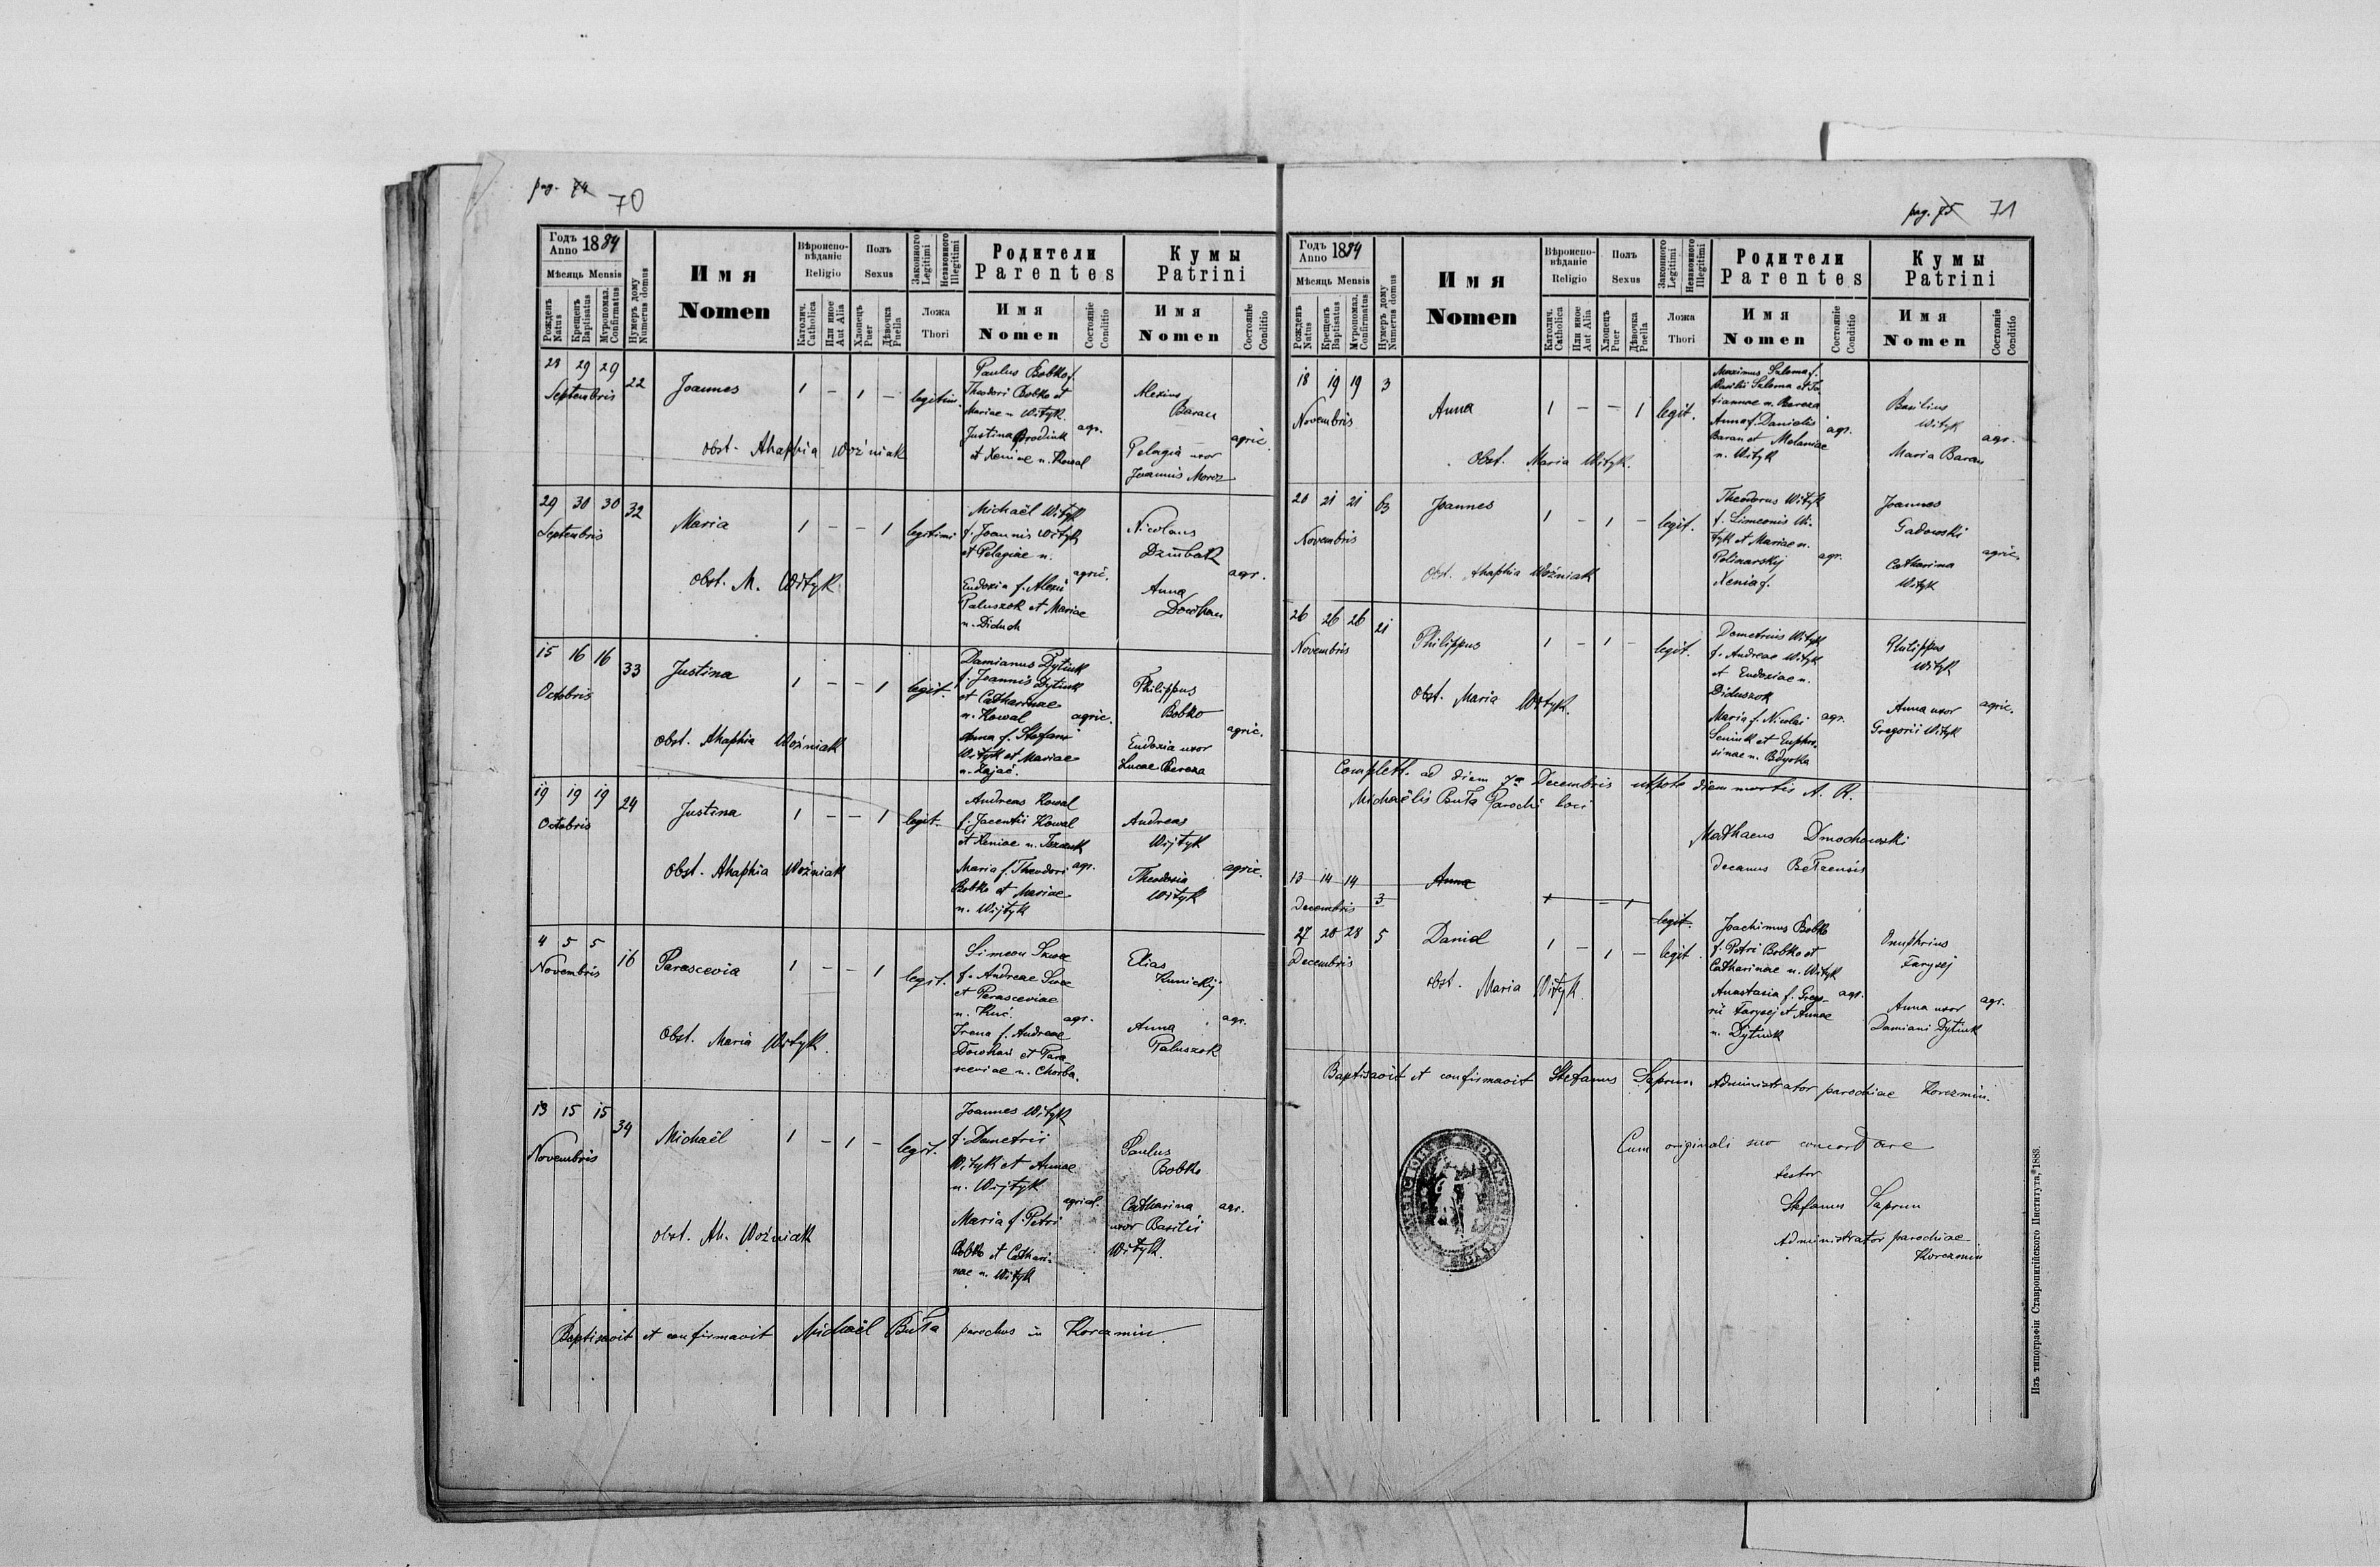 pag. 74
70
Годъ
Anno 1884
Мѣсяць Mensis
Рожденъ
Natus
Крещенъ
Baptisatus
Муропомаз.
Confirmatus
Нумеръ дому
Numerus domus
Имя
Nomen
Вѣроиспо-
вѣданіе
Religio
Католич.
Catholica
Или иное
Aut Alia
Полъ
Sexus
Хлопець
Puer
Дѣвочка
Puella
Законного
Legitimi
Незаконного
Illegitimi
Ложа
Thori
Родители
Parentes
Имя
Nomen
Состояніе
Conditio
Кумы
Patrini
Имя
Nomen
Состояніе
Conditio
28 29 29 22
Septembris
Joannes
1 - 1 -
legitim.
Paulus Bobko f.
Theodori Bobko et
Mariae n. Wityk
Justina
et Xeniae n. Kowal
agr.
Alexius
Baran
Pelagia uxor
Joannis Moroz
agric.
obst. Ahaphia Woźniak
29 30 30 32
Septembris
Maria
1 - - 1
legitimi
Michaël Wityk
f. Joannis Wityk
et Pelagiae n.
Eudoxia f. Alexii
Paluszok et Mariae
n. Diduch
agric.
Nicolaus
Dzumbak
Anna
Dowhan
agr.
obst. M. Wityk
15 16 16 33
Octobris
Justina
1 - - 1
legit.
Damianus Dytiuk
f. Joannis Dytiuk
et Catharinae
n. Kowal
Anna f. Stefani
Wityk et Mariae
n. Zajać.
agric.
Philippus
Bobko
Eudoxia uxor
Lucae Bereza
agric.
obst. Ahaphia Woźniak
19 19 19 24
Octobris
Justina
1 - - 1
legit.
Andreas Kowal
f. Jacentii Kowal
et Xeniae n.
Maria f. Theodori
Bobko et Mariae
n. Wijtyk
agr.
Andreas
Wijtyk
Theodosia
Wityk
agric.
obst. Ahaphia Woźniak
4 5 5 16
Novembris
Parascevia
1 - - 1
legit.
Simeon
f. Andreae
et Parasceviae
n. Kuć.
Irena f. Andreae
Dowhań et Para-
sceviae n. Chorba.
agr.
Elias
Kunickij
Anna
Paluszok
agr.
obst. Maria Wityk.
13 15 15 34
Novembris
Michaël
1 - 1 -
legit.
Joannes Wityk
f. Demetrii
Wityk et Annae
n. Wijtyk
Maria f. Petri
Bobko et Cathari-
nae n. Wityk
agricol.
Paulus
Bobko
Catharina
uxor Basilii
Wityk.
agr.
obst. Ah. Woźniak
Baptisavit et confirmavit Michaël Buła parochus in Korczmin.
pag. 75 71
Годъ
Anno 1884
Мѣсяць Mensis
Рожденъ
Natus
Крещенъ
Baptisatus
Муропомаз.
Confirmatus
Нумеръ дому
Numerus domus
Имя
Nomen
Вѣроиспо-
вѣданіе
Religio
Католич.
Catholica
Или иное
Aut Alia
Полъ
Sexus
Хлопець
Puer
Дѣвочка
Puella
Законного
Legitimi
Незаконного
Illegitimi
Ложа
Thori
Родители
Parentes
Имя
Nomen
Состояніе
Conditio
Кумы
Patrini
Имя
Nomen
Состояніе
Conditio
18 19 19 3
Novembris
Anna
1 - - 1
legit.
Maximus Saloma f.
Basilii Saloma et Ta-
tiannae n. Bereza
Anna f. Danielis
Baran et Melaniae
n. Wityk
agr.
Basilius
Wityk
Maria Baran
agr.
Obst. Maria Wityk.
20 21 21 63
Novembris
Joannes
1 - 1 -
legit.
Theodorus Wityk
f. Simeonis Wi-
tyk et Mariae n.
Polinarskij
Xenia f.
agr.
Joannes
Gadowski
Catharina
Wityk
agric.
Obst. Ahaphia Woźniak
26 26 26 21
Novembris
Philippus
1 - 1 -
legit.
Demetrius Wityk
f. Andreae Wityk
et Eudoxiae n.
Diduszok
Maria f. Nicolai
Seniuk et Euphro-
sinae n.
agr.
Philippus
Wityk
Anna uxor
Gregorii Wityk
agric.
Obst. Maria Wityk.
Complett. ad diem 7a Decembris utpote diem mortis A. R.
Michaëlis Buła Parochi loci
Mathaeus Dmochowski
decanus Bełzensis
13 14 14 3
Decembris
Anna
1 - 1
legit.
27 28 28 5
Decembris
Daniel
1 - 1 -
legit.
Joachimus Bobko
f. Petri Bobko et
Catharinae n. Wityk
Anastasia f. Grego-
rii Farysej et Annae
n. Dytiuk
agr.
Onuphrius
Farysej
Anna uxor
Damiani Dytiuk
agr.
obst. Maria Wityk.
Baptisavit et confirmavit Stefanus Saprun Administrator parochiae Korczmin.
Cum originali suo concordare
testor
Stefanus Saprun
Administrator parochiae
Korczmin
Изъ типографіи Ставропигійского Института, 1883.